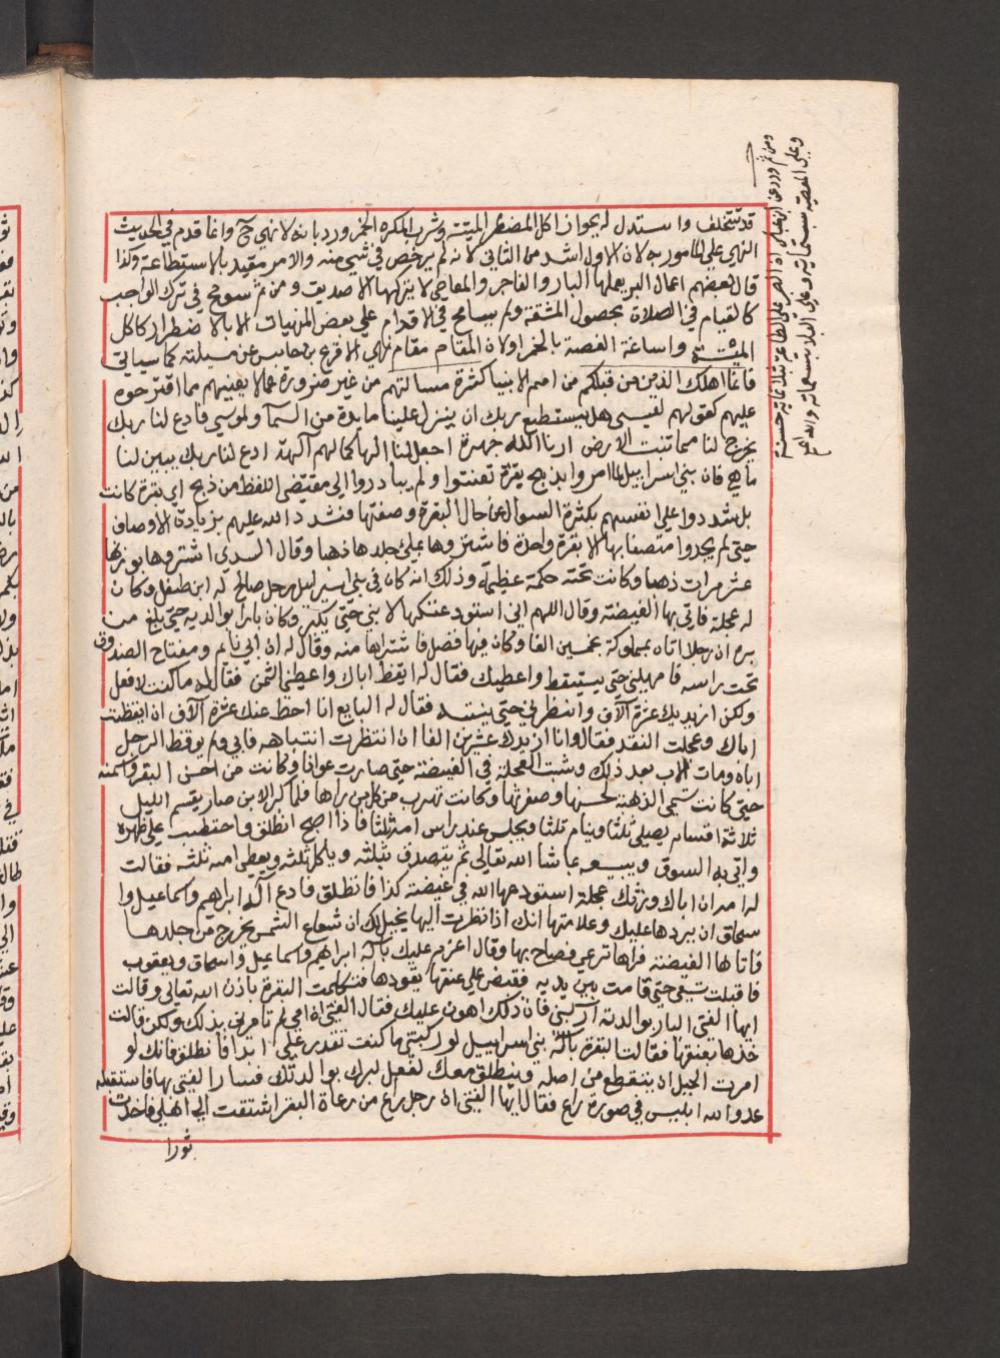 قد تتخلف واستدل له بجواز اكل المضطر الميتة وشرب المكره الخمر ورد بانه لا نهي ح وانما قدم في الحديث
النهي على المامور به لان الاول اشد من الثاني لانه لم يرخص في شي منه والامر مقيد بالاستطاعة وكذا
قال بعضهم اعمال البر يعملها البار والفاجر والمعاصي لا يتركها الا صديق ومن ثم سومح في ترك الواجب
كالقيام في الصلاة بحصول المشقة ولم يسامح في الاقدام على بعض المنهيات الا بالاضطرار كاكل
الميتة واساغة الغصة بالخمر اولان المقام مقام نهي الاقرع بن حابس عن مسيلته كما سياتي
فانما اهلك الذين من قبلكم من امم الانبيا كثرة مسالتهم من غير ضرورة عما لا يعنيهم مما اقترحوه
عليهم كقولهم لعيسى هل يستطيع ربك ان ينزل علينا مايدة من السما ولموسى فادع لنا ربك
يخرج لنا مما تنبت الارض ارنا الله جهرة اجعل لنا الها كما لهم آلهة ادع لنا ربك يبين لنا
ما هي فان بني اسراييل لما امروا بذبح بقرة تعنتوا ولم يبادروا الى مقتضى اللفظ من ذبح اي بقرة كانت
بل شددوا على انفسهم بكثرة السوال عن حال البقرة وصفتها فشدد الله عليهم بزيادة الاوصاف
حتى لم يجدوا متصفا بها الا بقرة واحدة فاشتروها بملئ جلدها ذهبا وقال السدي اشتروها بوزنها
عشر مرات ذهبا وكانت تحته حكمة عظيمة وذلك انه كان في بني اسراييل رجل صالح له ابن طفل وكان
له عجلة فاتى بها الغيضة وقال اللهم اني استودعتكها لابني حتى يكبر وكان بارا بوالديه حتى بلغ من
بره ان رجلا اتاه بمملوكة بخمسين الفا وكان فيها فضل فاشتراها منه وقال له ان ابي نايم ومفتاح الصندوق
تحت راسه فامهلني حتى يستيقظ واعطيك فقال له ايقظ اباك واعطني الثمن فقال له ما كنت لافعل
ولكن ازيدك عشرة آلاف وانتظرني حتى ينتبه فقال له البايع انا احط عنك عشرة آلاف ان ايقظت
اباك وعجلت النقد فقال وانا ازيدك عشرين الفا ان انتظرت انتباهه فابى ولم يوقظ الرجل
اباه ومات الاب بعد ذلك وشبت العجلة في الغيضة حتى صارت عوانا وكانت من احسن البقر واسمنه
حتى كانت تسمى الذهبة لحسنها وصفرتها وكانت تهرب من كل من راها فلما كبر الابن صار يقسم الليل
ثلاثة اقسام يصلي ثلثا وينام ثلثا ويجلس عند راس امه ثلثا فاذا اصبح انطلق واحتطب على ظهره
واتى به السوق ويبيعه بما شا الله تعالى ثم يتصدق بثلثه وياكل ثلثه ويعطي امه ثلثه فقالت
له امه ان اباك ورثك عجلة استودعها الله في غيضة كذا فانطلق فادع اله ابراهيم واسماعيل وا
سحاق ان يردها عليك وعلامتها انك اذا نظرت اليها يخيل لك ان شعاع الشمس يخرج من جلدها
فاتاها الغيضة فراها ترعى فصاح بها وقال اعزم عليك باله ابراهيم واسماعيل واسحاق ويعقوب
فاقبلت تسعى حتى قامت بين يديه فقبض على عنقها يقودها فتكلمت البقرة باذن الله تعالى وقالت
ايها الفتى البار بوالدته اركبني فان ذلك اهون عليك فقال الفتى ان امي لم تامرني بذلك ولكن قالت
خذها بعنقها فقالت البقرة باله بني اسراييل لو ركبتني ما كنت تقدر علي ابدا فانطلق فانك لو
امرت الجبل ان ينقطع من اصله وينطلق معك لفعل لبرك بوالدتك فسار الفتى بها فاستقبله
عدو الله ابليس في صورة راع فقال ايها الفتى ان رجل راع من رعاة البقر اشتقت الى اهلي فاخذت
ثورا
ومن ثم ورد عن ابن عباس ان الصبر على الطاعة بثلاثماية حسنة
وعلى المعصية بستماية وعلى البلا بتسعماية والله اعلم